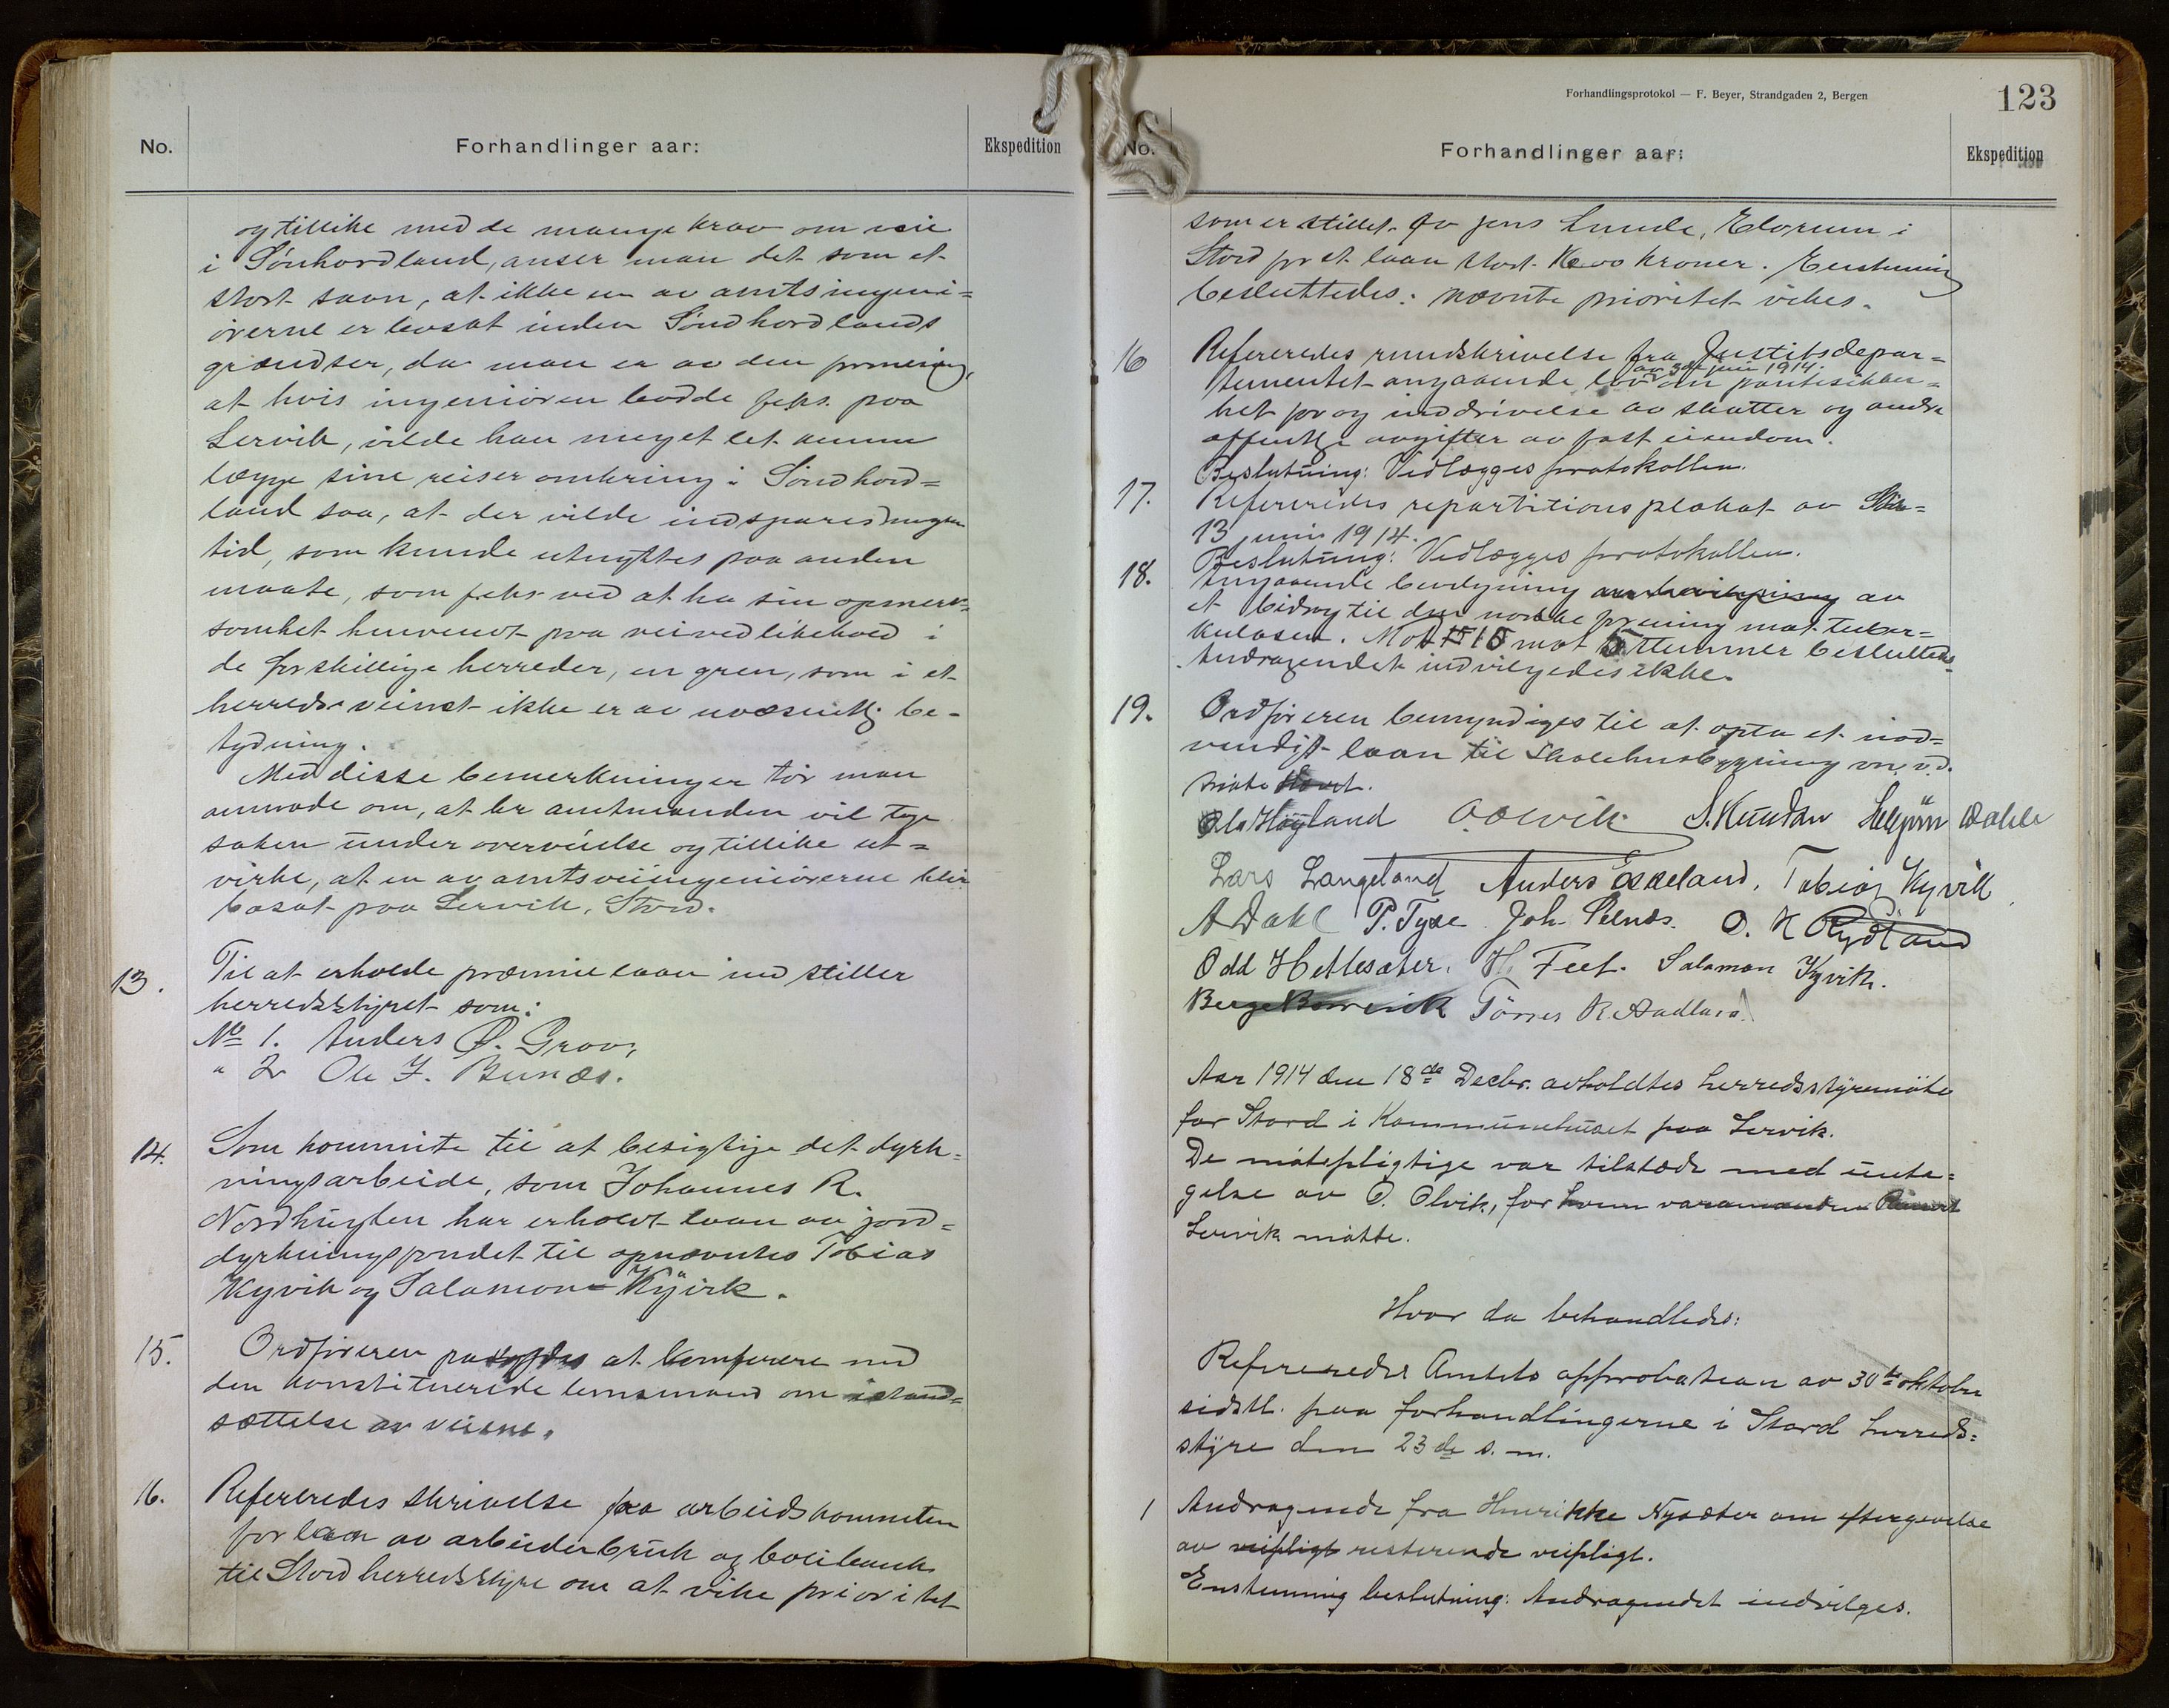 No.
Forhandlinger aar:
Ekspedition
og tillike med de mange krav om veie
i Sönhordland, anser man det som et
stort savn, at ikke en av amtsingeni=
örerne er bosat inden Söndhordlands
grændser, da man er av den formening,
at hvis ingeniören bodde feks. paa
Lervik, vilde han meget let kunne
lægge sine reiser omkring i Söndhord=
land saa, at der vilde indspares megen
tid, som kunde utnyttes paa anden
maate, som feks ved at ha sin opmerk=
somhet henvendt paa veivedlikehold i
de forskillige herreder, en gren, som i et
herreds veinet ikke er av uvæsentlig be-
tydning.
Med disse bemerkninger tör man
anmode om, at hr amtmanden vil tage
saken under overveielse og tillike ut=
virke, at en av amtsveiingeniörerne blir
bosat paa Lervik, Stord.
13.
Til at erholde præmielaan indstiller
herredsstyret som:
No 1. Anders Ø. Grov,
" 2 Ole J. Bunæs.
14.
Som kommite til at besigtige det dyrk=
ningsarbeide, som Johannes R.
Nordhuglen har erholdt laan av jord=
dyrkningsfondet til opnævntes Tobias
Kyvik og Salamon Kyvik.
15.
Ordföreren at konferere med
den konstituerede lensmand om istand=
sættelse av veiene.
16.
Refereredes skrivelse fra arbeidskommiteen
for laan av arbeiderbruk og bolibank
til Stord herredsstyre om at vike prioritet
Forhandlingsprotokol — F. Beyer, Strandgaden 2, Bergen
123
No.
Forhandlinger aar:
Ekspedition
som er stillet av Jens Lunde, Eldorum i
Stord for et laan stort kroner. Enstemmig
besluttedes: nævnte prioritet vikes.
16
Refereredes rundskrivelse fra Justitsdepar=
av juni 1914.
tementet angaaende lov om pantesikker=
het for og inddrivelse av skatter og andre
offentlige avgifter av fast eiendom.
Beslutning: Vedlægges protokollen.
17.
Refereredes repartitions plakat av
13 juni 1914.
Beslutning: Vedlægges protokollen.
18.
Angaaende bevilgning av
et bidrag til den norske forening mot tuber=
kulosen. Mot 15 mot 5 stemmer besluttedes
Andragendet indvilgedes ikke.
19.
Ordföreren bemyndiges til at opta et nöd=
vendigt laan til Skolehusbygning m. v. d.
Ola Höyland O. Olvik S. Knutsen Dahle
Lars Langeland Anders Eskeland, Tobias Kyvik
A Dahl P. Tyse Joh. O. K Rydland
Odd Hetlesæter. H. Feet. Salamon Kyvik.
Berge Torres R. Aadland
Aar 1914 den 18de Decbr. avholdtes herredsstyremöte
for Stord i Kommunehuset paa Lervik.
De mötepligtige var tilstæde med unta=
gelse av O. Olvik, for hvem varamanden
Lervik mötte.
Hvor da behandledes:
Refereredes Amtets approbation av 30te oktober
sidstl. paa forhandlingerne i Stord herreds=
styre den 23de s. m.
1
Andragende fra Henrikke Nysæter om eftergivelse
av veipligt resterende veipligt.
Enstemmig beslutning: Andragendet indvilges.